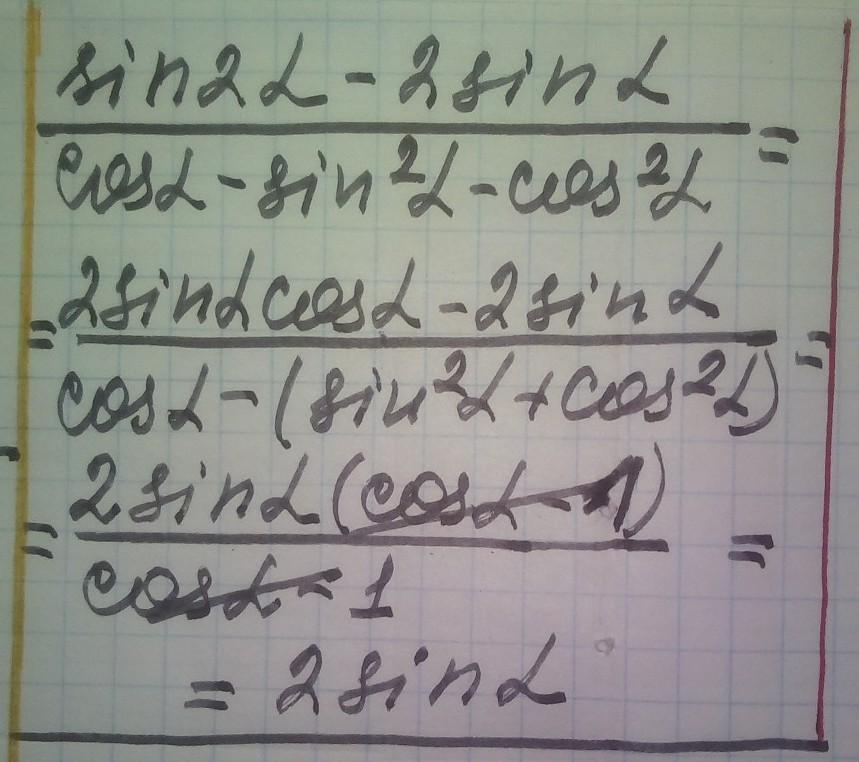 sin2α - 2sinα
cosα - sin²α - cos²α =
= 2sinαcosα - 2sinα
cosα - (sin²α + cos²α) =
= 2sinα(cosα - 1)
cosα - 1 =
= 2sinα